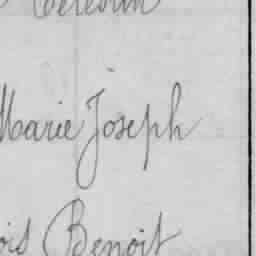 Marie Joseph
ois Benoit